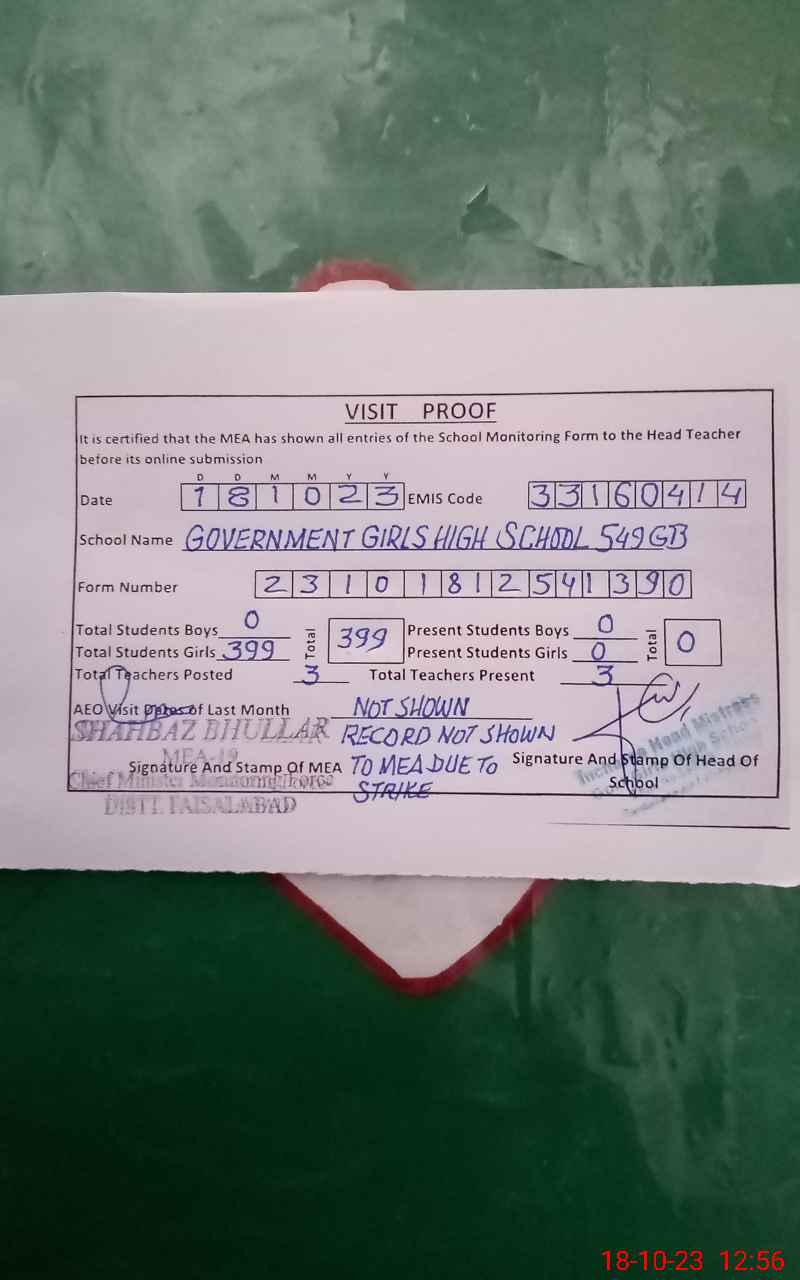 VISIT PROOF
It is certified that the MEA has shown all entries of the School Monitoring Form to the Head Teacher
before its online submission
D D M M Y Y
Date 181023 EMIS Code 33160414
School Name GOVERNMENT GIRLS HIGH SCHOOL 549 GB
Form Number 23101812541390
Total Students Boys 0 Total 399 Present Students Boys 0 Total 0
Total Students Girls 399 Present Students Girls 0
Total Teachers Posted 3 Total Teachers Present 3
AEO Visit Dates of Last Month NOT SHOWN
SHAHBAZ BHULLAR RECORD NOT SHOWN
MEA-19
Signature And Stamp Of MEA TO MEA DUE TO Signature And Stamp Of Head Of
Chief Minister Monitoring Force STRIKE School
DISTT. FAISALABAD
Head Mistress
18-10-23 12:56